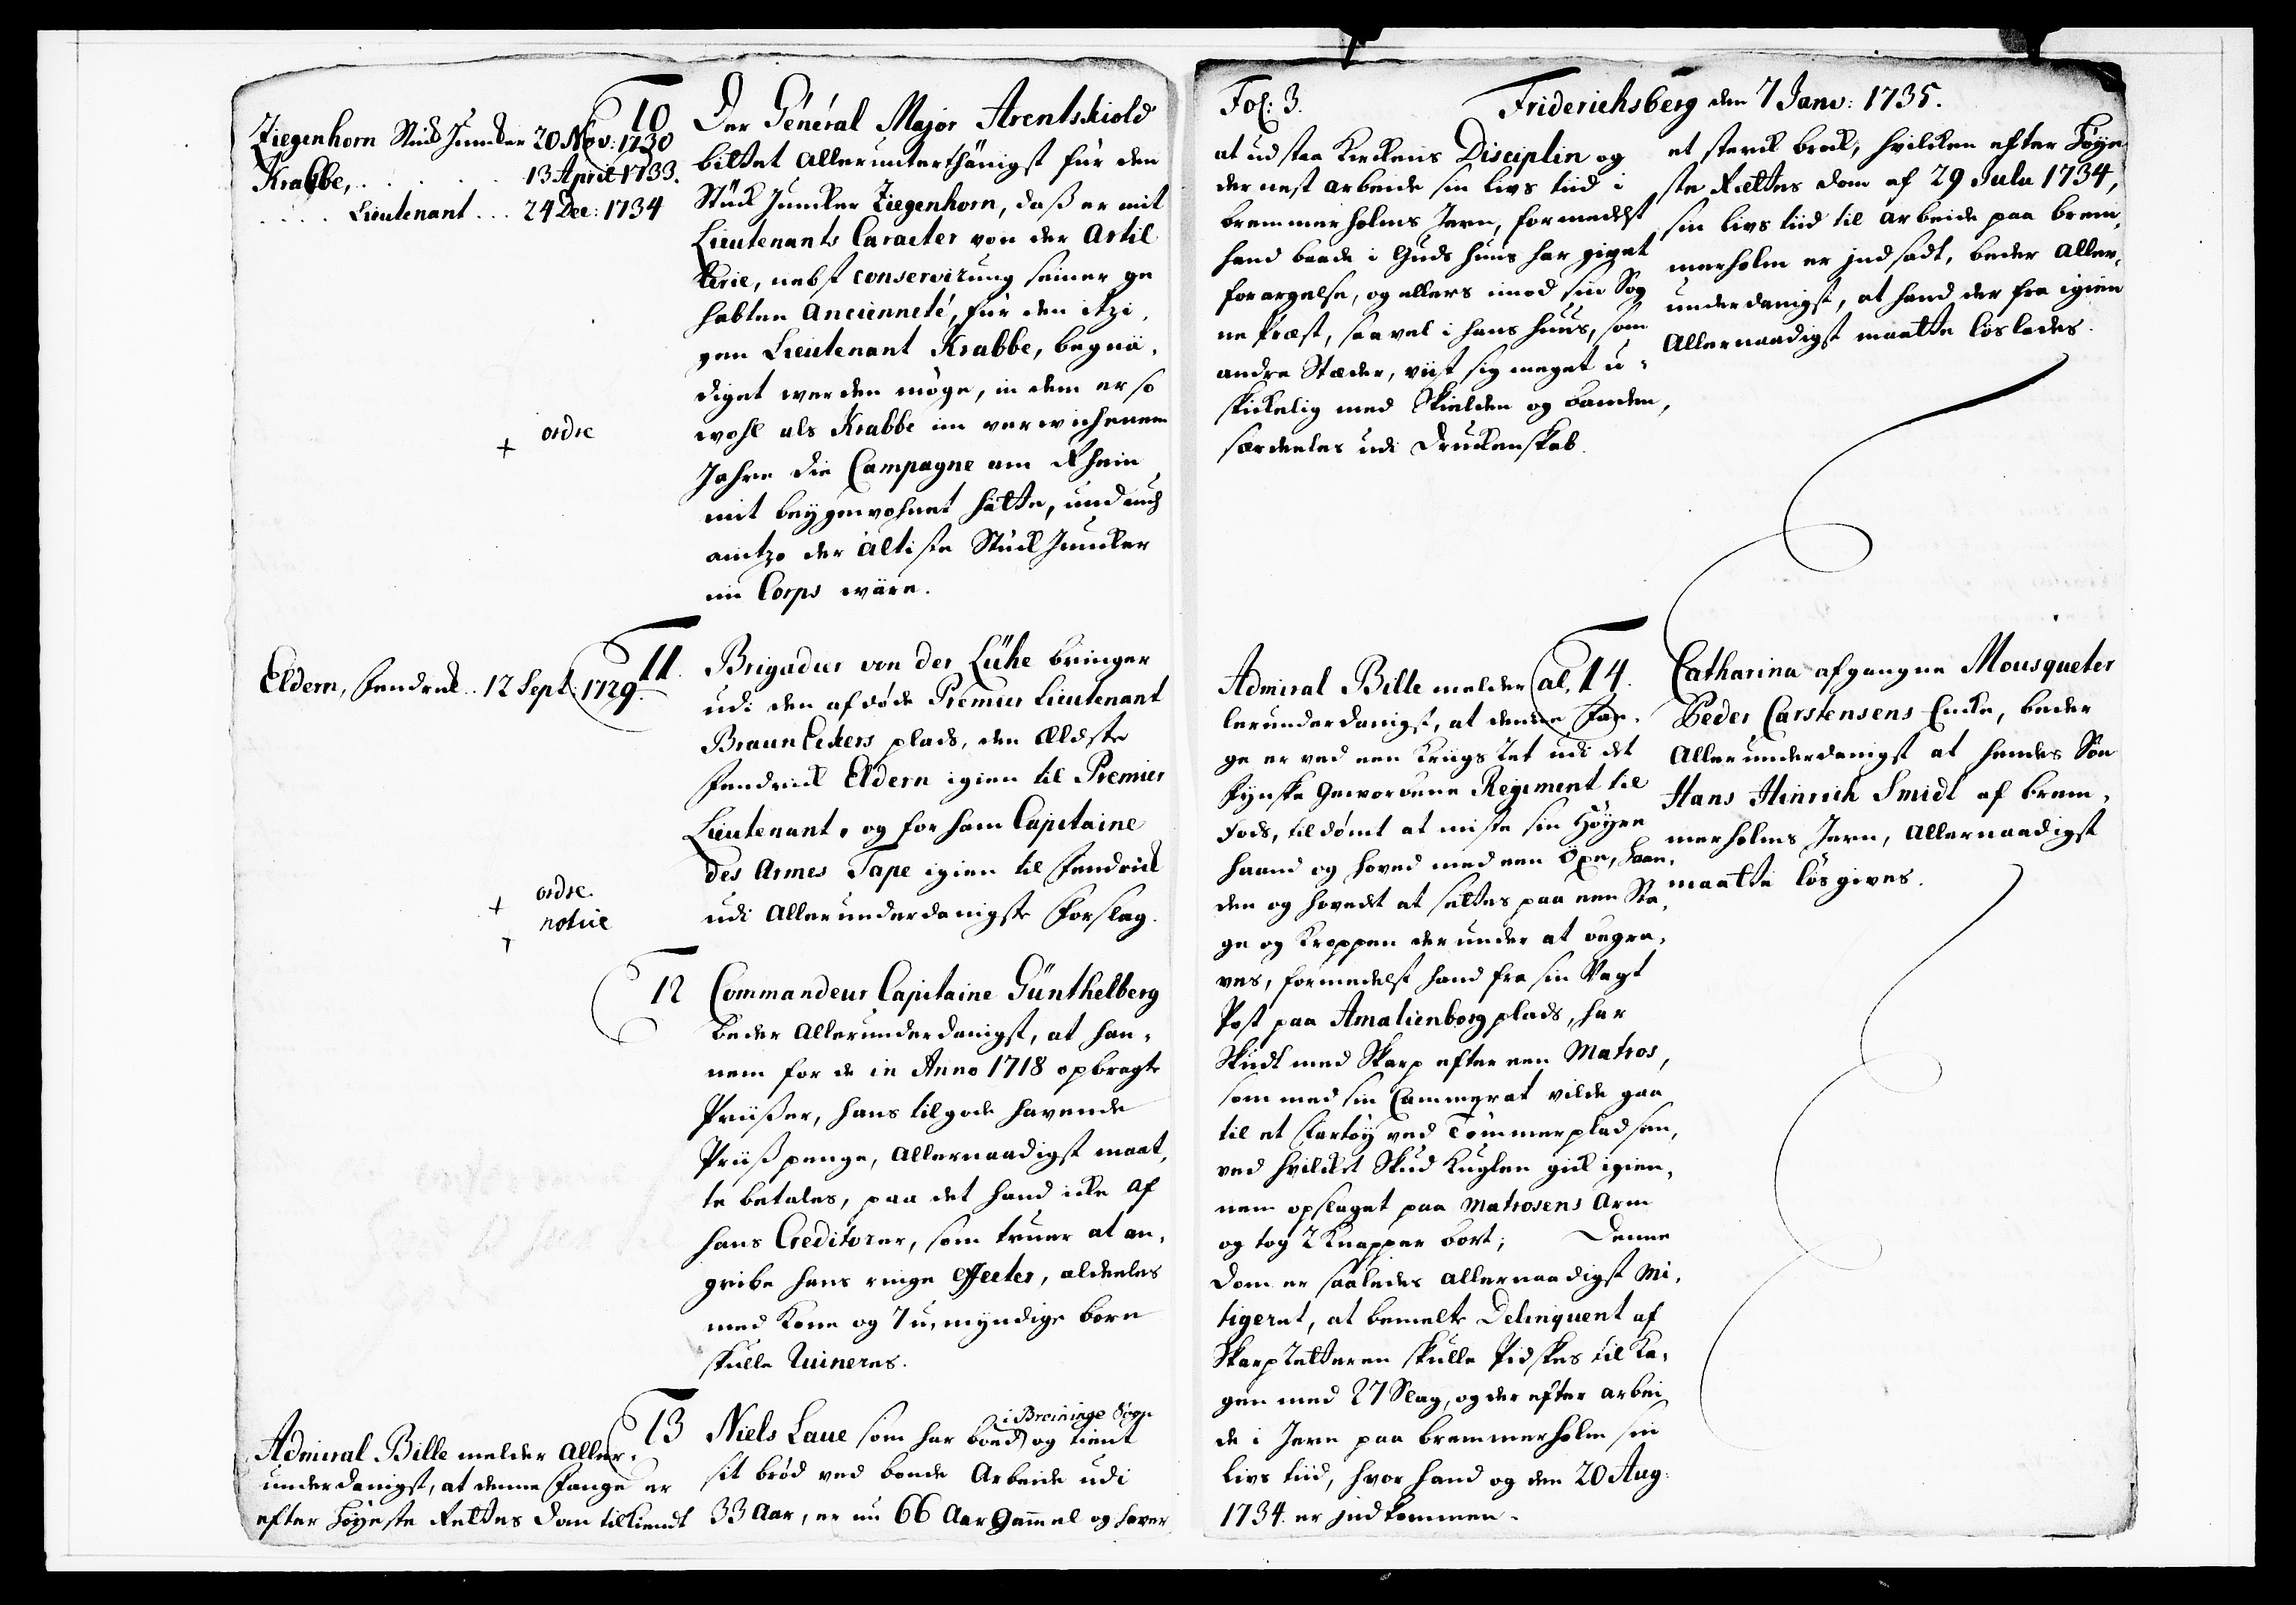 10
Ziegenhorn Stück Juncker 20 Nov: 1730
Krabbe, . . . . . 13 April 1733.
. . . . Lieutenant . . . 24 Dec: 1734
+ ordre
Der Géneral Major Arentskiold
bittet allerunterthänigst für den
Stück Juncker Ziegenhorn, daß er mit
Lieutenants Caracter von der Artil
lerie, nebst conservirung seiner ge
habten Ancienneté, für den itzi,
gen Lieutenant Krabbe, begnä,
diget werden möge, in dem er so
wohl als Krabbe im verwichenem
Jahre die Campagne am Rhein
mit beygewohnet hätte, und auch
anitzo der ältiste Stück Juncker
im Corps wäre.
11.
Eldern, Fendrick . . 12 Sept: 1729.
+ ordre.
+ notice
Brigadier von der Lühe bringer
udi den afdøde Premier Lieutenant
Braun Eckers plads, den Ældste
Fendrick Eldern igien til Premier
Lieutenant, og for ham Capitaine
des Armes Tape igien til Fendrick
udi allerunderdanigste Forslag.
12
Commandeur Capitaine Günthelberg
beder allerunderdanigst, at han,
nem for de in Anno 1718 opbragte
Priißer, hans tilgode havende
Priißpenge, allernaadigst maat,
te betales, paa det hand icke af
hans Creditorer, som truer at an,
gribe hans ringe Effecter, aldeeles
med Kone og 7 u,myndige børn
skulle Ruineres.
13
Admiral Bille melder aller,
underdanigst, at denne Fange er
efter Høyeste Rettes dom tilkiendt
Niels Laue som har boed og tient
i Breininge Sogn
sit brød ved bonde Arbeide udi
33 Aar, er nu 66 Aar gammel og haver
Fol: 3. Friderichsberg den 7 Janv: 1735.
at udstaa Kirckens Disciplin og
der nest arbeide sin livs tiid i
bremmerholms Jern, formedelst
hand baade i Guds huus har givet
forargelse, og ellers imod sin Sog
ne Præst, saavel i hans huus, som
andre Stæder, viist sig meget u,
skickelig med Skielden og banden,
særdeeles udi Druckenskab.
et sterck brock, hvilcken efter Høye
ste Rettes dom af 29 Julu 1734,
sin livs tiid til arbeide paa brem,
merholm er indsadt, beder aller,
underdanigst, at hand der fra igien
allernaadigst maatte løslades.
14.
Admiral Bille melder al,
lerunderdanigst, at denne Fan,
ge er ved een Kriigs Ret udi det
Fynske Geworbene Regiment til
Fods, tildømt at miste sin Høyre
haand og hoved med een Öxe, haan,
den og hovedt at settes paa een Sta,
ge og Kroppen der under at begra,
ves, formedelst hand fra sin Vagt
Post paa Amalienborg plads, har
Skudt med Skarp efter een Matros,
som med sin Cammerat vilde gaa
til et Fartøy ved Tømmerpladsen,
ved hvilcket Skud Kuglen gick igien,
nem opslaget paa Matrosens Arm
og tog 2 Knapper bort; Denne
Dom er saaledes allernaadigst Mi,
tigeret, at bemelte Delinquent af
Skarpretteren skulle Pidskes til Ka,
gen med 27 Slag, og der efter arbei
de i Jern paa bremmerholm sin
livs tiid, hvor hand og den 20 Aug:
1734. er indkommen.
Catharina afgangne Mousqueter
Peder Carstensens Encke, beder
allerunderdanigst at hendes Søn
Hans Hinrich Smidt af brem,
merholms Jern, allernaadigst
maatte løsgives.